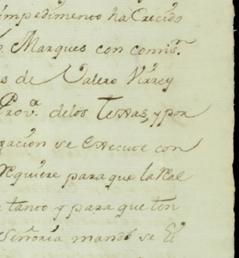 impedimento ha Crecido
Marques con comis.ⁿ
s de Valero Virrey
Prov.ª de los Texas, y por
gacion se execute con
requiere para que la Rl
tanto y para que ten
Señoria mando se